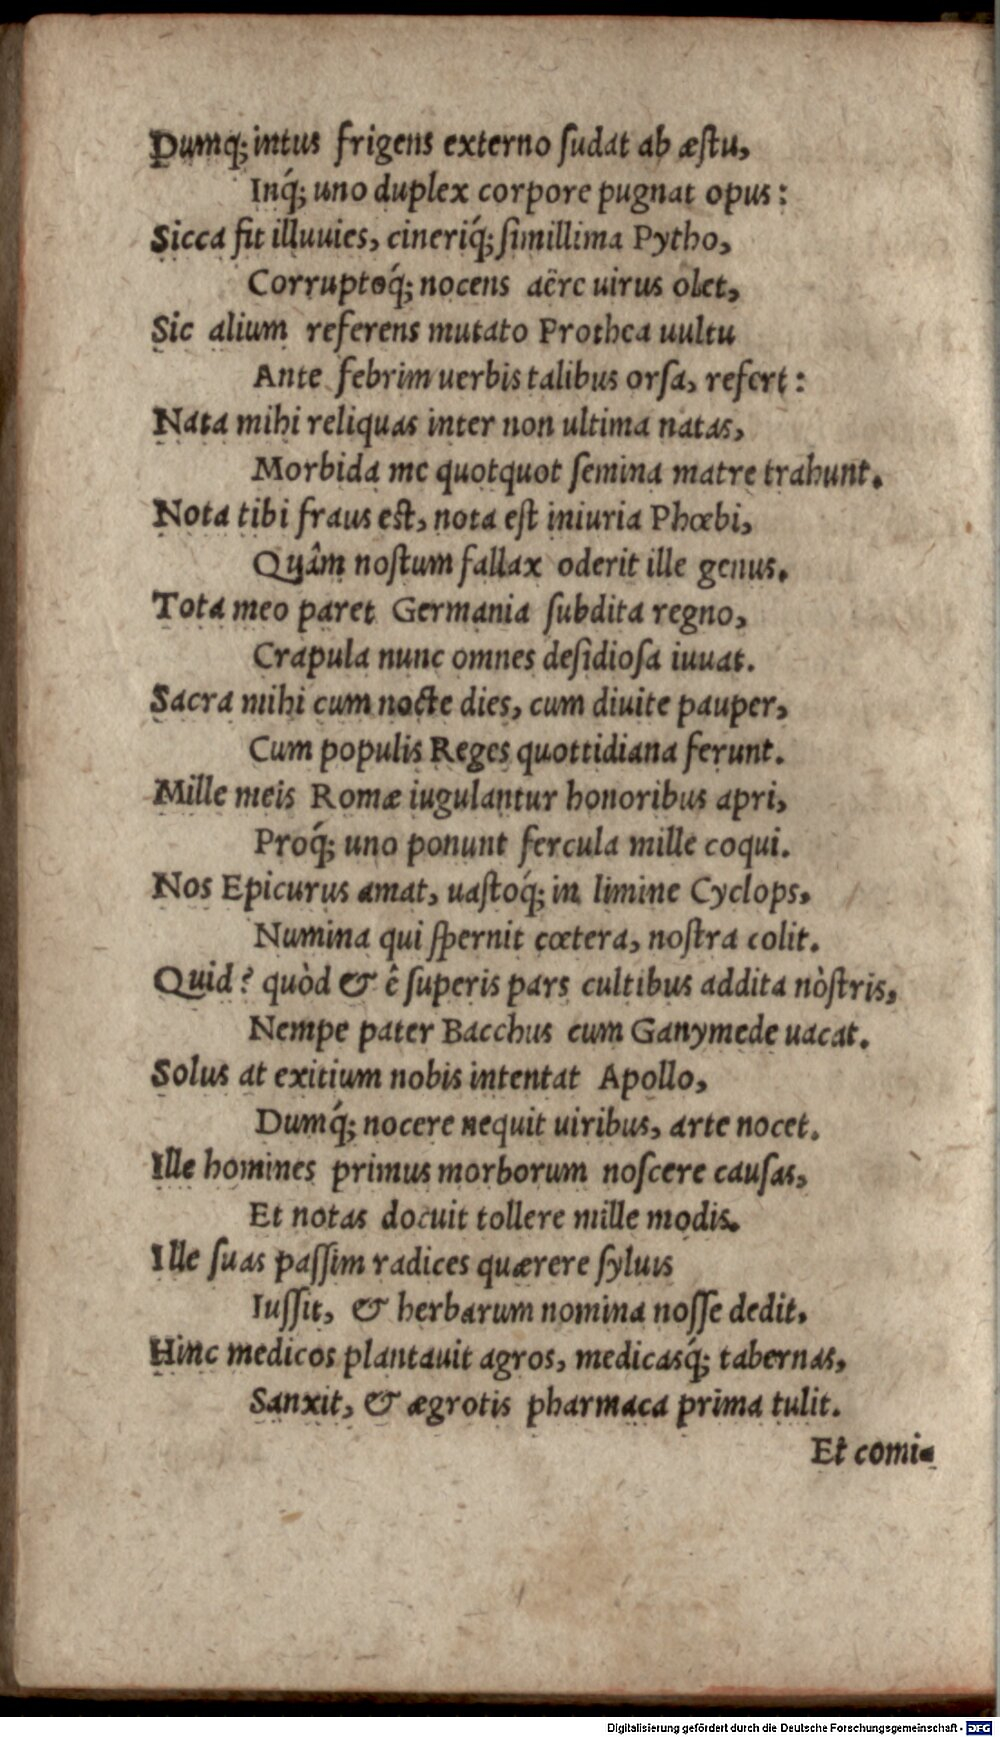 Dumq́; intus frigens externo sudat ab æstu,
Inq́; uno duplex corpore pugnat opus:
Sicca fit illuuies, cineriq́; simillima Pytho,
Corruptoq́; nocens aëre uirus olet,
Sic alium referens mutato Prothea uultu
Ante febrim uerbis talibus orsa, refert:
Nata mihi reliquas inter non ultima natas,
Morbida me quotquot semina matre trahunt.
Nota tibi fraus est, nota est iniuria Phœbi,
Quâm nostum fallax oderit ille genus.
Tota meo paret Germania subdita regno,
Crapula nunc omnes desidiosa iuuat.
Sacra mihi cum nocte dies, cum diuite pauper,
Cum populis Reges quottidiana ferunt.
Mille meis Romæ iugulantur honoribus apri,
Proq́; uno ponunt fercula mille coqui.
Nos Epicurus amat, uastoq́; in limine Cyclops,
Numina qui spernit cœtera, nostra colit.
Quid? quòd & ê superis pars cultibus addita nòstris,
Nempe pater Bacchus cum Ganymede uacat.
Solus at exitium nobis intentat Apollo,
Dumq́; nocere nequit uiribus, arte nocet.
Ille homines primus morborum noscere causas,
Et notas docuit tollere mille modis.
Ille suas passim radices quærere syluis
Iussit, & herbarum nomina nosse dedit.
Hinc medicos plantauit agros, medicasq́; tabernas,
Sanxit, & ægrotis pharmaca prima tulit.
Et comi-
Digitalisierung gefördert durch die Deutsche Forschungsgemeinschaft - DFG